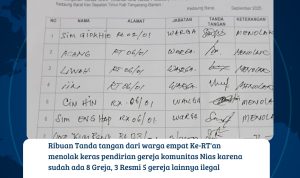 Kedaung Barat Kec Sepatan Timur Kab Tangerang Banten
Kedaung Barat, September 2025
NO NAMA ALAMAT JABATAN TANDA TANGAN KETERANGAN
1 RT 02/01 WARGA MENOLAK
2 ATANG RT 06/01 WARGA MENOLAK
3 LIWAH RT 06/01 WARGA MENOLAK
4 RT 06/01 WARGA MENOLAK
5 CIN HIN RT 06/01 WARGA MENOLAK
6 SIM ENG HAP RT 06/01 WARGA MENOLAK
WARGA MENOLAK
Ribuan Tanda tangan dari warga empat Ke-RT'an
menolak keras pendirian gereja komunitas Nias karena
sudah ada 8 Greja, 3 Resmi 5 gereja lainnya ilegal